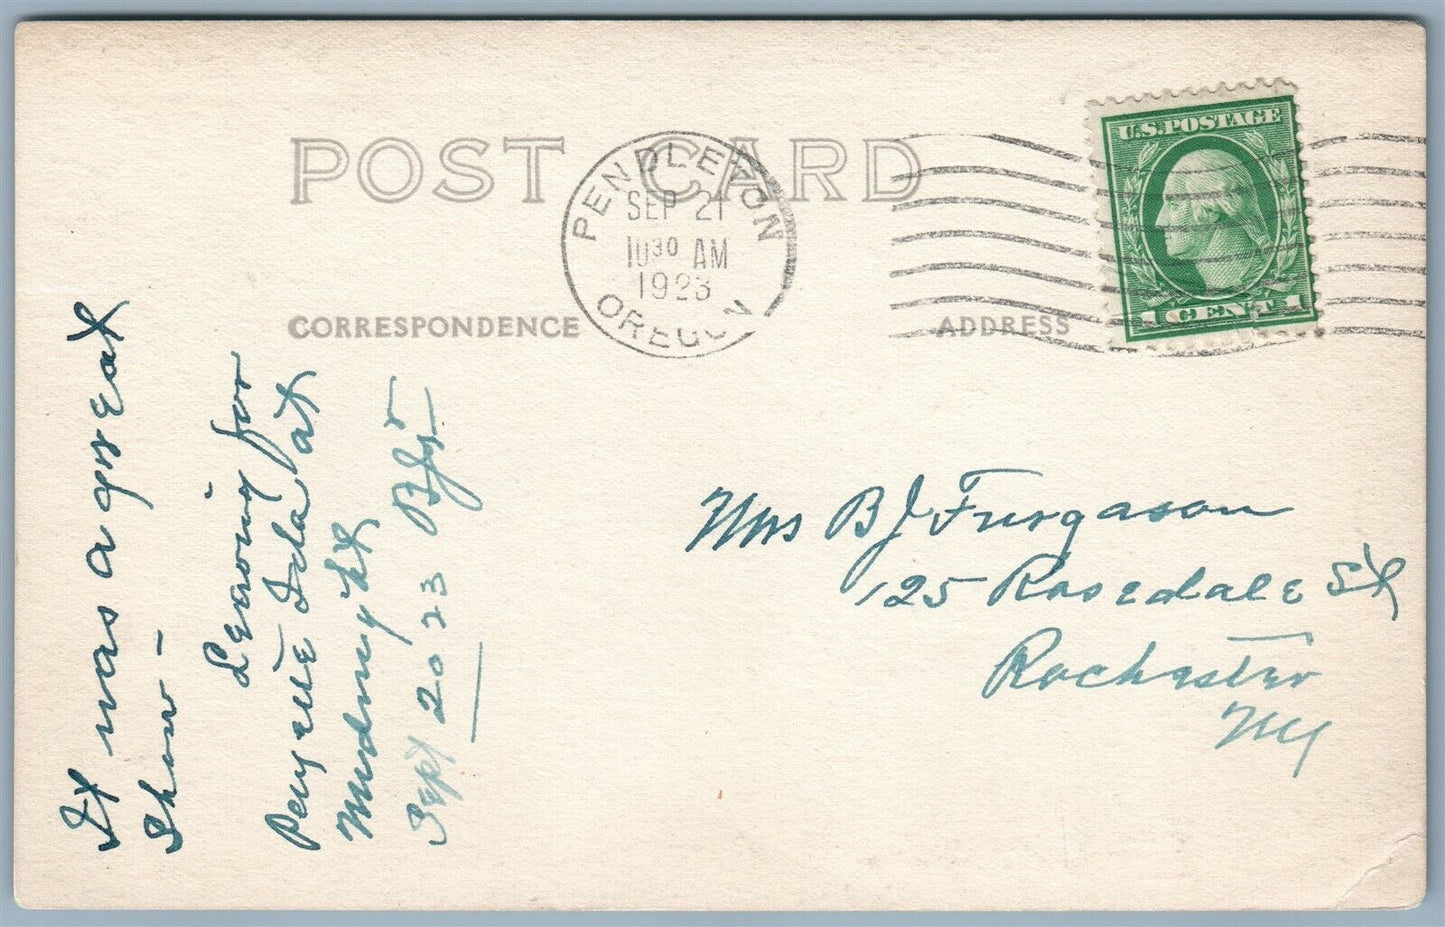 POST CARD
PENDLETON
SEP 21
10 30 AM
1923
OREGON
U.S. POSTAGE
1 CENT 1
CORRESPONDENCE
ADDRESS
It was a great
Show -
Leaving for
Payette Ida at
Midnight
Sept 20 23 BJF
Mrs B J Furgason
125 Rosedale St
Rochester
NY